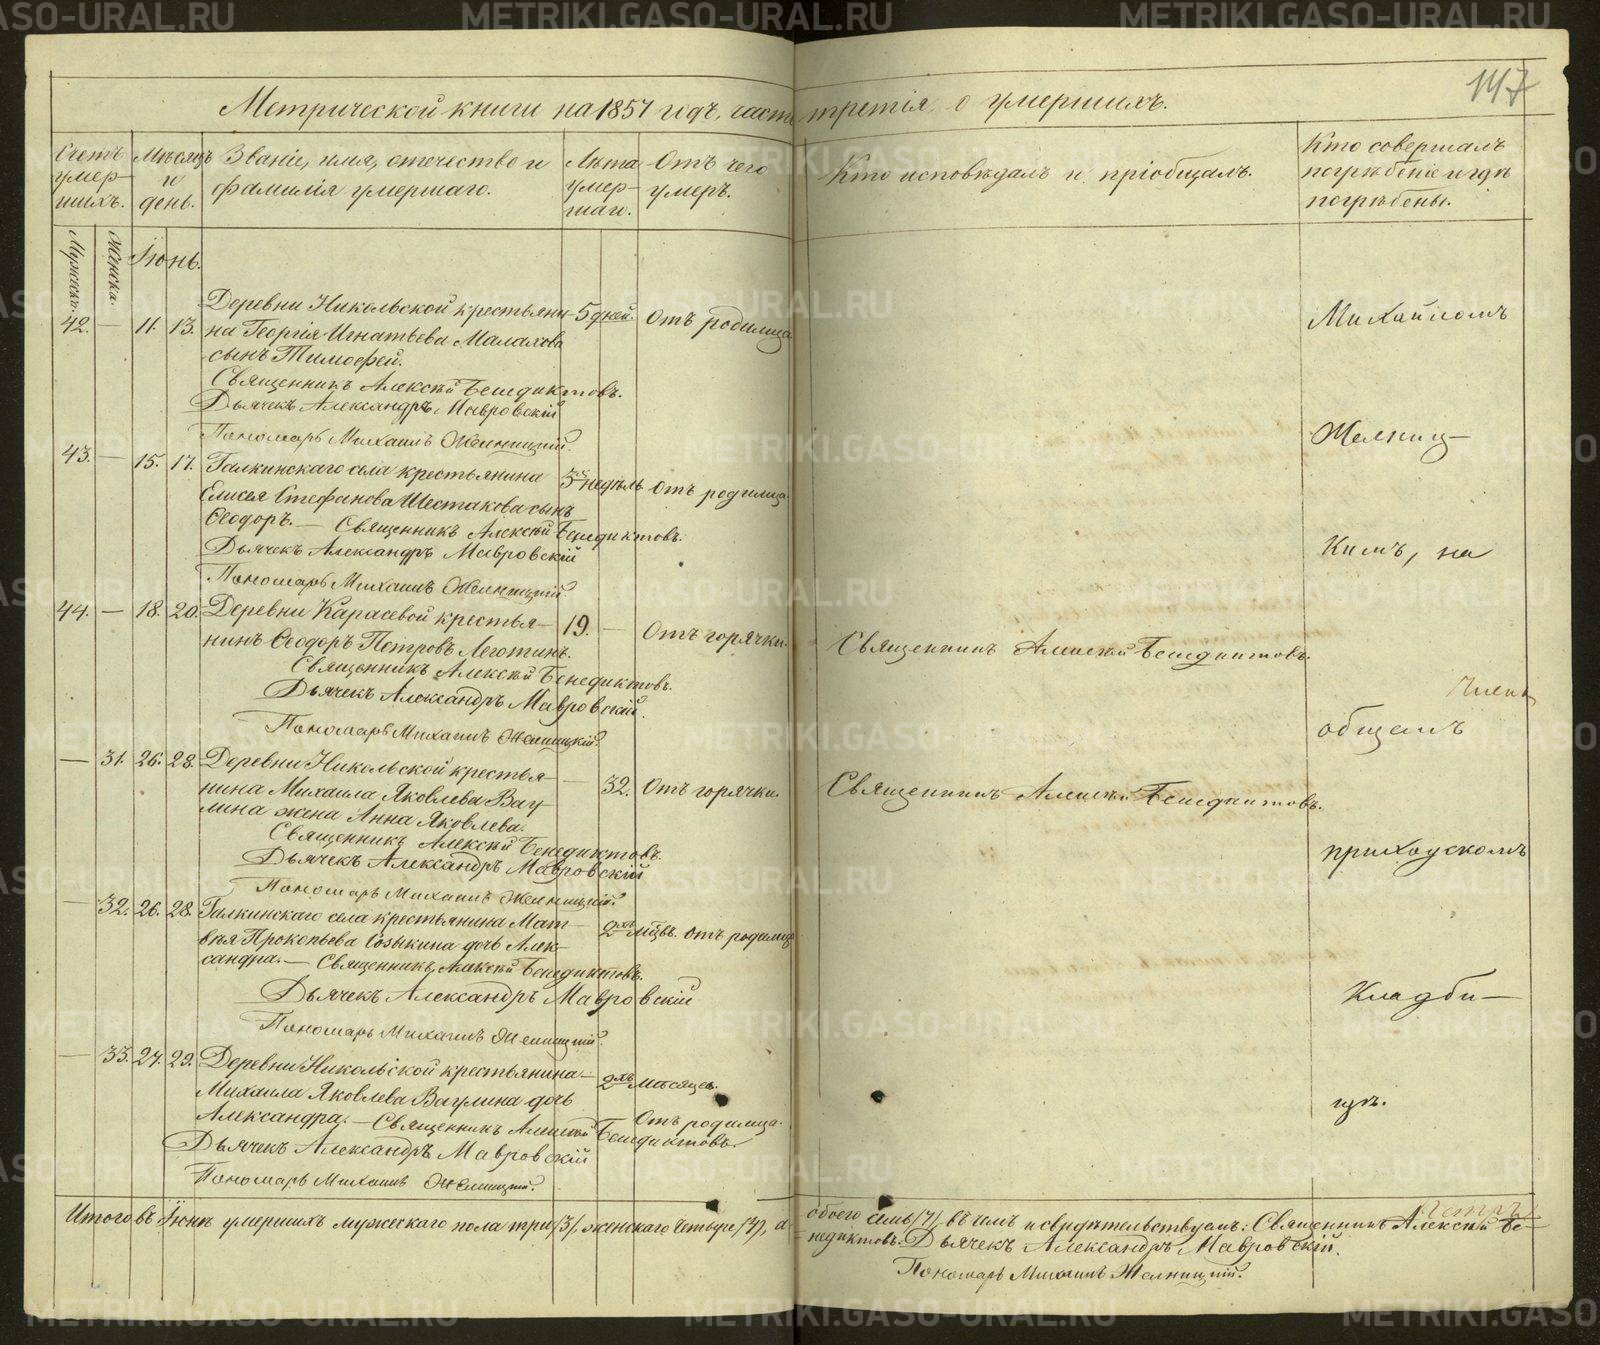 147
Метрической книги на 1857 годъ, часть третія о умершихъ.
Счетъ умер- шихъ.
Мѣсяцъ и день.
Званіе, имя, отечество и
фамилія умершаго.
Лѣта умер- шаго.
Отъ чего умеръ.
Кто исповѣдалъ и пріобщалъ.
Кто совершалъ
погребеніе и гдѣ
погребены.
Мужска.
Женска.
Іюнь.
42. — 11. 13. Деревни Никольской крестьяни- 5 дней. Отъ родимца
на Георгія Игнатьева Малахова
сынъ Тимофей.
Священникъ Алексѣй Бенедиктовъ.
Дьячекъ Александръ Мавровскій
Пономарь Михаилъ Желницкій.
43. — 15. 17. Галкинскаго села крестьянина 3хъ недѣль Отъ родимца
Елисея Стефанова Шестакова сынъ
Ѳеодоръ. — Священникъ Алексѣй Бенедиктовъ.
Дьячекъ Александръ Мавровскій
Пономарь Михаилъ Желницкій.
44. — 18. 20. Деревни Карасевой крестья- 19. — Отъ горячки. Священникъ Алексѣй Бенедиктовъ.
нинъ Ѳеодоръ Петровъ Леготинъ.
Священникъ Алексѣй Бенедиктовъ.
Дьячекъ Александръ Мавровскій.
Пономарь Михаилъ Желницкій.
— 31. 26. 28. Деревни Никольской крестья- — 32. Отъ горячки. Священникъ Алексѣй Бенедиктовъ.
нина Михаила Яковлева Вау
лина жена Анна Яковлева.
Священникъ Алексѣй Бенедиктовъ.
Дьячекъ Александръ Мавровскій
Пономарь Михаилъ Желницкій.
— 32. 26. 28. Галкинскаго села крестьянина Мат- 2хъ мѣсц. Отъ родимца
вѣя Прокопьева Созыкина дочь Алек-
сандра. — Священникъ Алексѣй Бенедиктовъ.
Дьячекъ Александръ Мавровскій
Пономарь Михаилъ Желницкій.
— 33. 27. 29. Деревни Никольской крестьянина — 2хъ мѣсяцев.
Михаила Яковлева Ваулина дочь
Александра. — Священникъ Алексѣй Бенедиктовъ. Отъ родимца.
Дьячекъ Александръ Мавровскій
Пономарь Михаилъ Желницкій.
Михайломъ
Желниц-
кимъ, на
общемъ
приходскомъ
кладби-
щѣ.
Итого въ Іюнѣ умершихъ мужескаго пола три /3/, женскаго четыре /4/, а обоего семь /7/, въ чемъ и свидѣтельствуемъ: Священникъ Алексѣй Бе
недиктовъ. Дьячекъ Александръ Мавровскій.
Пономарь Михаилъ Желницкій.
METRIKI.GASO-URAL.RU